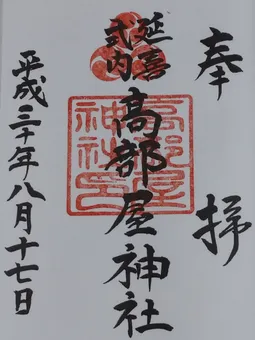 奉拝
延喜式内
高部屋神社
高部屋神社印
平成三十年八月十七日